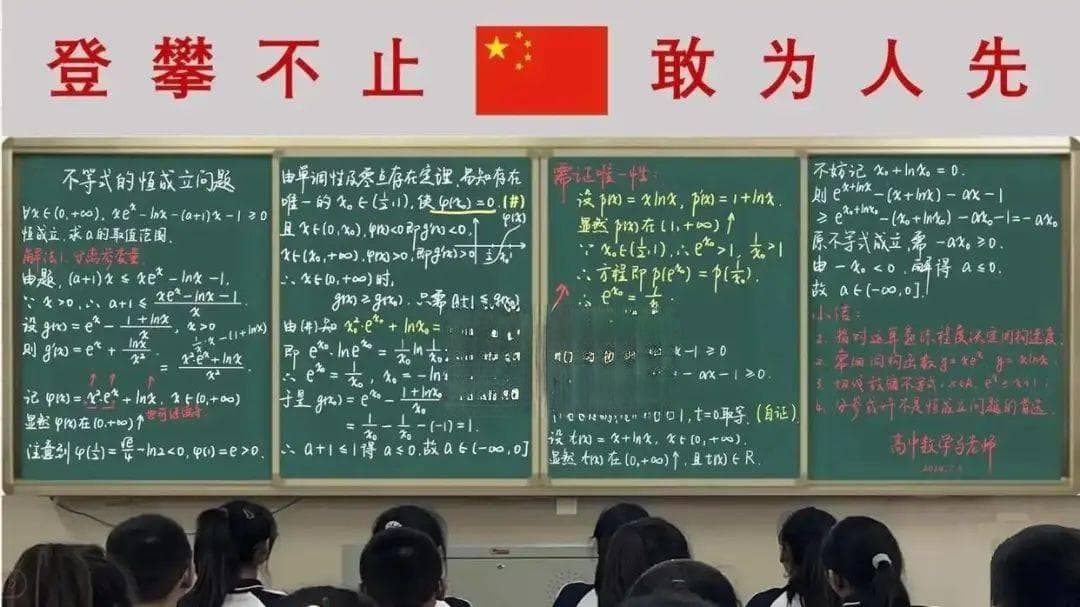 登攀不止 敢为人先
不等式的恒成立问题
∀x∈(0,+∞), xe^x-lnx-(a+1)x-1≥0
恒成立,求a的取值范围.
解法1.分离参变量.
由题,(a+1)x≤xe^x-lnx-1.
∵x>0,∴a+1≤(xe^x-lnx-1)/x.
设g(x)=e^x-(1+lnx)/x, x>0
则g'(x)=e^x+lnx/x²
=(x²e^x+lnx)/x².
记φ(x)=x²·e^x+lnx, x∈(0,+∞)
显然φ(x)在(0,+∞)↑
注意到φ(1/2)=√e/4-ln2<0,φ(1)=e>0.
由单调性及零点存在定理,易知存在
唯一的x₀∈(1/2,1),使φ(x₀)=0.(#)
φ(x)
且x∈(0,x₀),φ(x)<0即g'(x)<0,
x∈(x₀,+∞),φ(x)>0,即g'(x)>0
∴x∈(0,+∞)时,
g(x)≥g(x₀),只需a+1≤g(x₀)
由(#)知x₀²·e^x₀+lnx₀=
即e^x₀·lne^x₀=1/x₀ ln
∴e^x₀=1/x₀, x₀=-ln
于是g(x₀)=e^x₀-(1+lnx₀)/x₀
=1/x₀-1/x₀-(-1)=1.
∴a+1≤1得a≤0.故a∈(-∞,0]
需证唯一性:
设p(x)=xlnx, p'(x)=1+lnx.
显然p(x)在(1,+∞)↑
∵x₀∈(1/2,1),∴e^x₀>1,1/x₀>1
∴方程即p(e^x₀)=p(1/x₀).
∴e^x₀=1/x₀.
x-1≥0
-ax-1≥0.
t=0取等.(自证)
设t(x)=x+lnx, x∈(0,+∞).
显然t(x)在(0,+∞)↑,且t(x)∈R.
不妨记x₀+lnx₀=0.
则e^(x+lnx)-(x+lnx)-ax-1
≥e^(x₀+lnx₀)-(x₀+lnx₀)-ax₀-1=-ax₀
原不等式成立,需-ax₀≥0.
由-x₀<0,解得a≤0.
故a∈(-∞,0].
小结:
2.常用同构函数y=xe^x y=xlnx
3.切线放缩不等式
高中数学